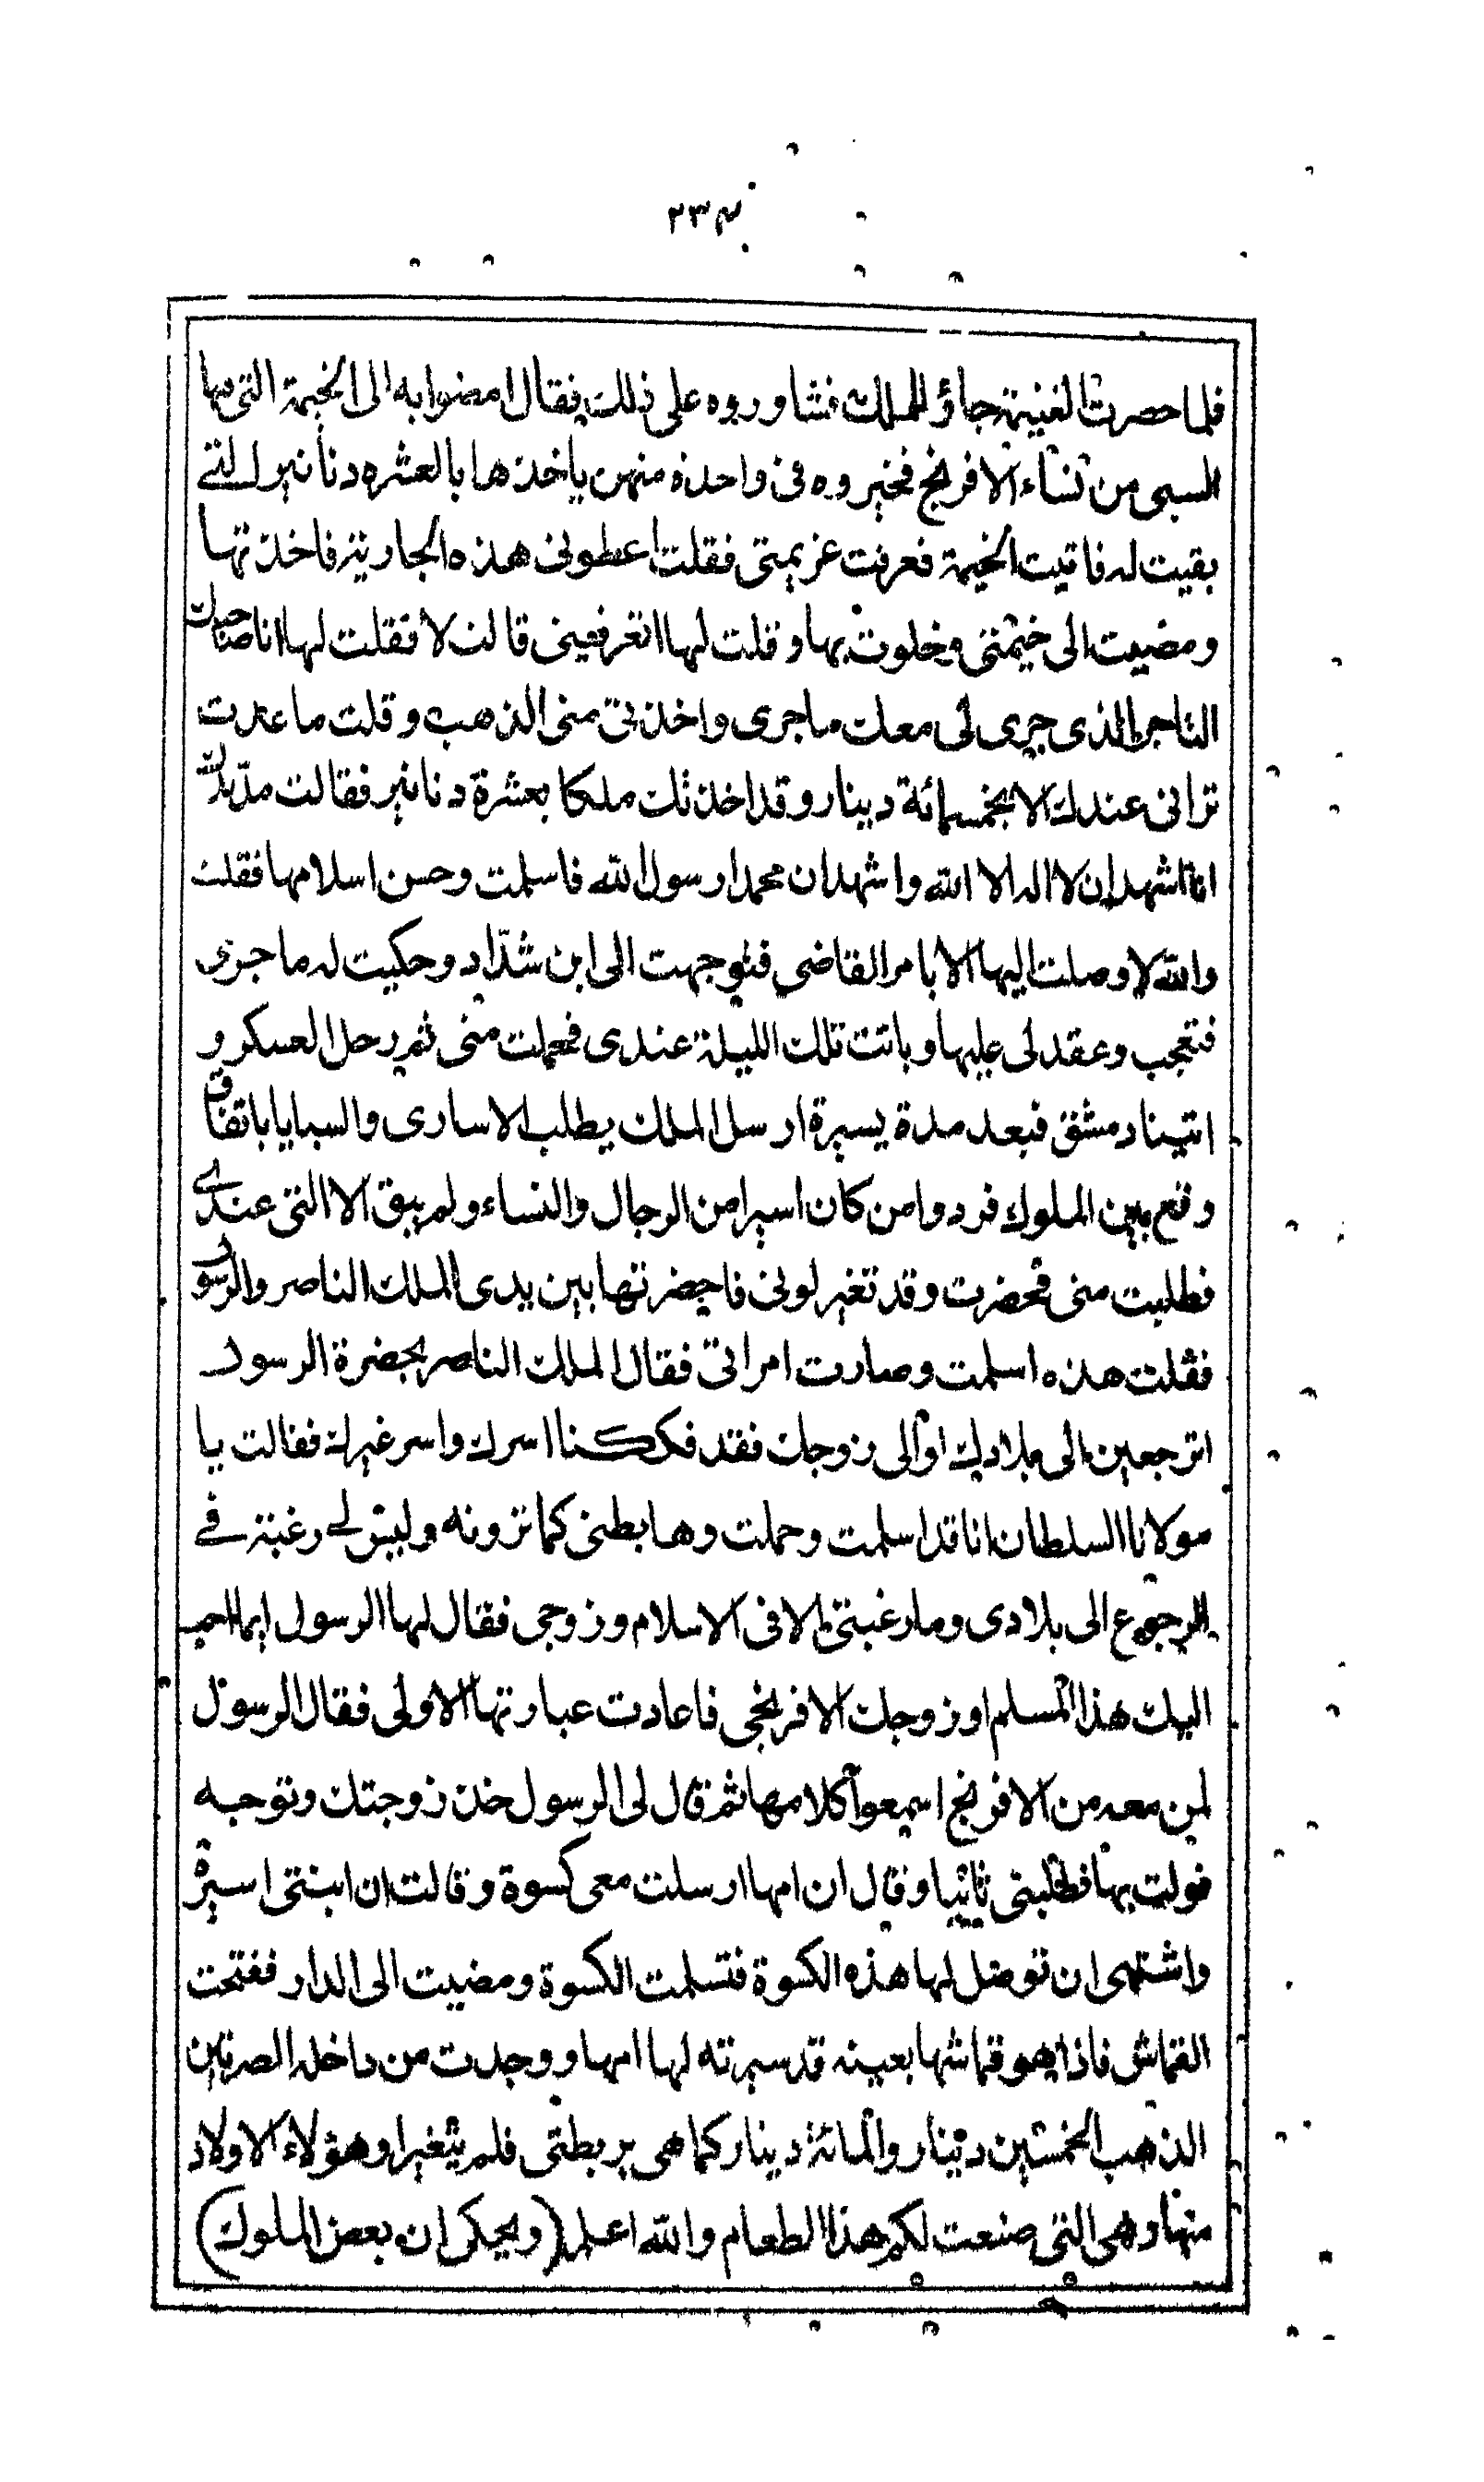 ٢٣٤
فلما حصرت الغنيمة جاؤ الملك فشاوروه على ذلك فقال امضوا به الى الخيمة التى بها
السبى من نساء الافرنج فخيروه فى واحدة منهن ياخذها بالعشره دنانير التے
بقيت له فاتيت الخيمة فعرفت غريمتى فقلت اعطونى هذه الجارية فاخذتها
ومضيت الى خيمتى وخلوت بها وقلت لها اتعرفينى قالت لا فقلت لها انا صاحبك
التاجر الذى جرى لى معك ماجرى واخذتى منى الذهب وقلت ما عدت
ترانى عندك الا بخمسمائة دينار وقد اخذتك ملكا بعشرة دنانير فقالت مد يدك
انا اشهد ان لا اله الا الله واشهد ان محمدا رسول الله فاسلمت وحسن اسلامها فقلت
والله لا وصلت اليها الا بامر القاضى فتوجهت الى ابن شدّاد وحكيت له ما جرى
فتعجب وعقد لى عليها وباتت تلك الليلة عندى فحملت منى ثم رحل العسكر و
اتينا دمشق فبعد مدة يسيرة ارسل الملك يطلب الاسارى والسبايا باتفاق
وقع بين الملوك فردوا من كان اسيرا من الرجال والنساء ولم يبق الا التى عندى
فطلبت منى فحضرت وقد تغير لونى فاحضرتها بين يدى الملك الناصر والرسول
فقلت هذه اسلمت وصارت امراتى فقال الملك الناصر بحضرة الرسول
اترجعين الى بلادك او الى زوجك فقد فككنا اسرك واسر غيرك فقالت يا
مولانا السلطان انا قد اسلمت وحملت وها بطنى كما ترونه وليس لے رغبة فے
الرجوع الى بلادى وما رغبتى الا فى الاسلام وزوجى فقال لها الرسول ايما احب
اليك هذا المسلم او زوجك الافرنجى فاعادت عبارتها الاولى فقال الرسول
لمن معه من الافرنج اسمعوا كلامها ثم قال لى الرسول خذ زوجتك وتوجه
فوليت بها فطلبنى ثانيا وقال ان امها ارسلت معى كسوة وقالت ان ابنتى اسيرة
واشتهى ان توصل لها هذه الكسوة فتسلمت الكسوة ومضيت الى الدار ففتحت
القماش فاذا هو قماشها بعينه قد سيرته لها امها ووجدت من داخله الصرتين
الذهب الخمسين دينار والمائة دينار كما هى بربطتى فلم يتغيرا وهؤلاء الاولاد
منها وهى التى صنعت لكم هذا الطعام والله اعلم (ويحكى ان بعض الملوك)